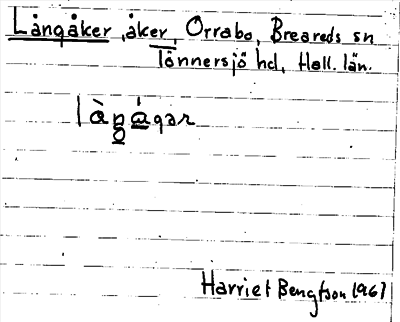 Långåker, åker, Orrabo, Breareds sn
Tönnersjö hd, Hall. län.
Harriet Bengtson 1961